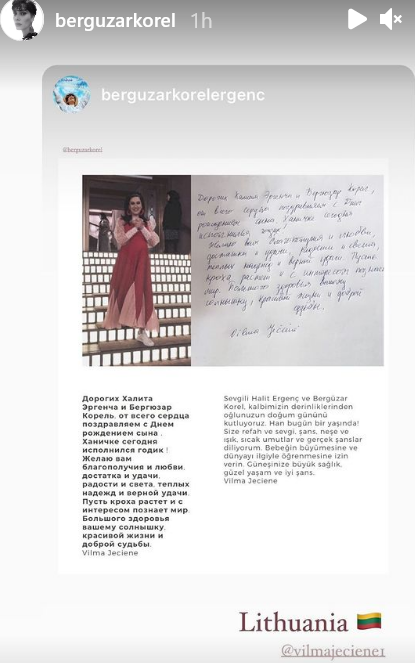 berguzarkorel 1h
berguzarkorelergenc
@berguzarkorel
Дорогих Халита Эргенча и Бергюзар Корель,
от всего сердца поздравляем с Днем
рождением сына. Ханичке сегодня
исполнился годик!
Желаю вам благополучия и любви,
достатка и удачи, радости и света,
теплых надежд и верной удачи. Пусть
кроха растет и с интересом познает
мир. Большого здоровья вашему
солнышку, красивой жизни и доброй
судьбы.
Vilma Ječienė
Дорогих Халита
Эргенча и Бергюзар
Корель, от всего сердца
поздравляем с Днем
рождением сына .
Ханичке сегодня
исполнился годик !
Желаю вам
благополучия и любви,
достатка и удачи,
радости и света, теплых
надежд и верной удачи.
Пусть кроха растет и с
интересом познает мир.
Большого здоровья
вашему солнышку,
красивой жизни и
доброй судьбы.
Vilma Jeciene
Sevgili Halit Ergenç ve Bergüzar
Korel, kalbimizin derinliklerinden
oğlunuzun doğum gününü
kutluyoruz. Han bugün bir yaşında!
Size refah ve sevgi, şans, neşe ve
ışık, sıcak umutlar ve gerçek şanslar
diliyorum. Bebeğin büyümesine ve
dünyayı ilgiyle öğrenmesine izin
verin. Güneşinize büyük sağlık,
güzel yaşam ve iyi şans.
Vilma Jeciene
Lithuania 🇱🇹
@vilmajeciene1